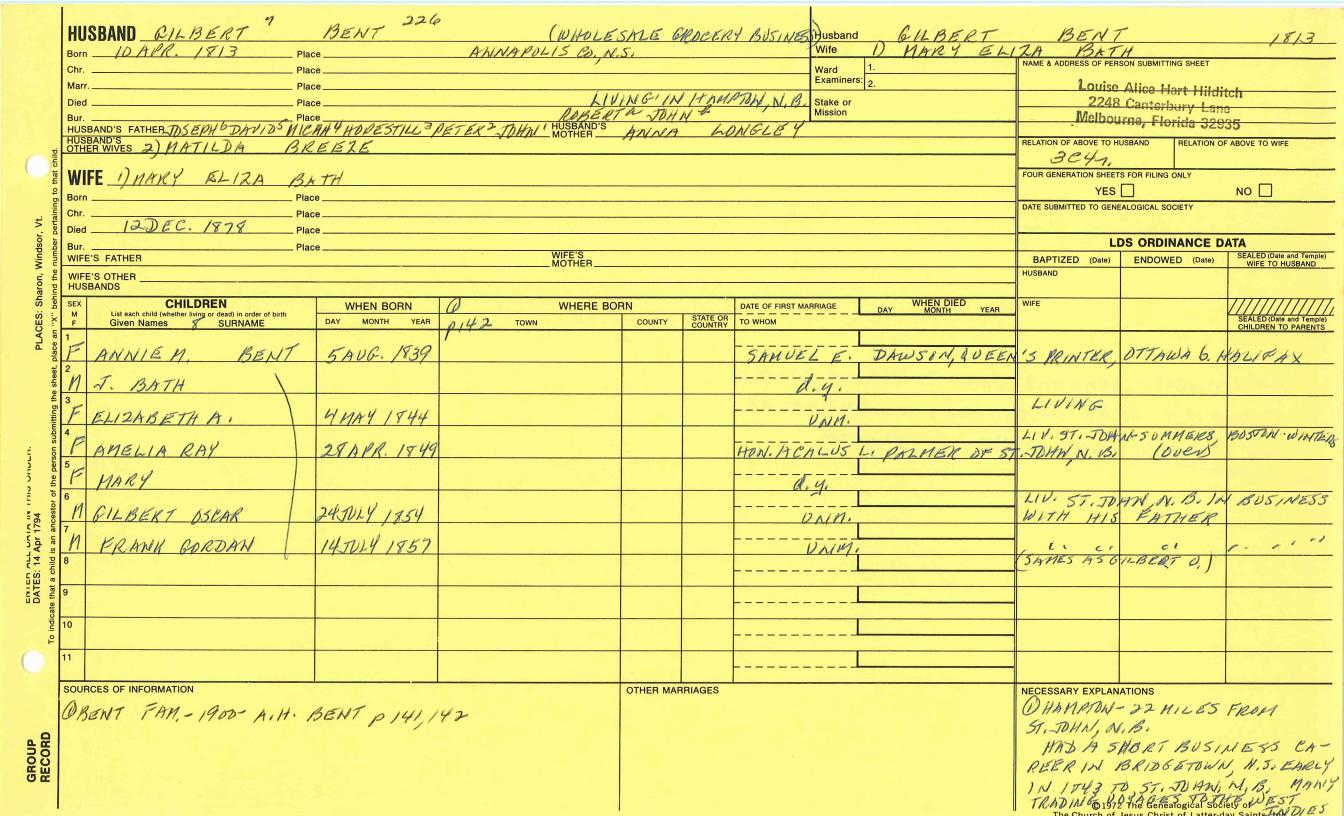 HUSBAND GILBERT 7 BENT 226 (WHOLESALE GROCERY BUSINESS)
Born 10 APR. 1813 Place ANNAPOLIS CO, N.S.
Chr. Place
Marr. Place
Died Place LIVING IN HAMPTON, N.B.
Bur. Place ROBERT JOHN
HUSBAND'S FATHER JOSEPH 6 DAVID 5 MICAH 4 HOPESTILL 3 PETER 2 JOHN 1 HUSBAND'S MOTHER ANNA LONGLEY
HUSBAND'S OTHER WIVES 2) MATILDA BREEZE
Husband GILBERT BENT 1813
Wife 1) MARY ELIZA BATH
Ward Examiners: 1.
2.
Stake or Mission
NAME & ADDRESS OF PERSON SUBMITTING SHEET
Louise Alice Hart Hilditch
2248 Canterbury Lane
Melbourne, Florida 32935
RELATION OF ABOVE TO HUSBAND RELATION OF ABOVE TO WIFE
3C4r.
FOUR GENERATION SHEETS FOR FILING ONLY
YES NO
DATE SUBMITTED TO GENEALOGICAL SOCIETY
WIFE 1) MARY ELIZA BATH
Born Place
Chr. Place
Died 12 DEC. 1878 Place
Bur. Place
WIFE'S FATHER WIFE'S MOTHER
WIFE'S OTHER HUSBANDS
LDS ORDINANCE DATA
BAPTIZED (Date) ENDOWED (Date) SEALED (Date and Temple) WIFE TO HUSBAND
HUSBAND
WIFE
SEALED (Date and Temple) CHILDREN TO PARENTS
SEX M F
CHILDREN
List each child (whether living or dead) in order of birth
Given Names 8 SURNAME
WHEN BORN
DAY MONTH YEAR
① p142
WHERE BORN
TOWN COUNTY STATE OR COUNTRY
DATE OF FIRST MARRIAGE
TO WHOM
WHEN DIED
DAY MONTH YEAR
1 F ANNIE M. BENT 5 AUG. 1839 SAMUEL E. DAWSON, QUEEN'S PRINTER, OTTAWA & HALIFAX
2 M J. BATH d.y.
3 F ELIZABETH A. 4 MAY 1844 UNM. LIVING
4 F AMELIA RAY 28 APR. 1849 HON. ACALUS L. PALMER OF ST. JOHN, N.B. (OVER)
LIV. ST. JOHN-SUMMERS, BOSTON-WINTERS
5 F MARY d.y.
6 M GILBERT OSCAR 24 JULY 1854 UNM. LIV. ST. JOHN, N.B. IN BUSINESS
WITH HIS FATHER
7 M FRANK GORDAN 14 JULY 1857 UNM. " " " " " "
(SAMES AS GILBERT O.)
8
9
10
11
SOURCES OF INFORMATION
① BENT FAM.-1900- A.H. BENT p 141, 142
OTHER MARRIAGES
NECESSARY EXPLANATIONS
① HAMPTON-22 MILES FROM
ST. JOHN, N.B.
HAD A SHORT BUSINESS CA-
REER IN BRIDGETOWN, N.S. EARLY
IN 1843 TO ST. JOHN, N.B, MANY
TRADING VOYAGES TO THE WEST
INDIES
©1972 The Genealogical Society of
The Church of Jesus Christ of Latter-day Saints
PLACES: Sharon, Windsor, Vt.
ENTER ALL DATA IN THIS ORDER:
DATES: 14 Apr 1794
To indicate that a child is an ancestor of the person submitting the sheet, place an "X" behind the number pertaining to that child.
GROUP RECORD